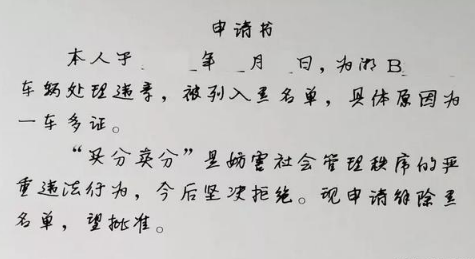 申请书
本人于 年 月 日，为湘B
车辆处理违章，被列入黑名单，具体原因为
一车多证。
“买分卖分”是妨害社会管理秩序的严
重违法行为，今后坚决拒绝。现申请解除黑
名单，望批准。